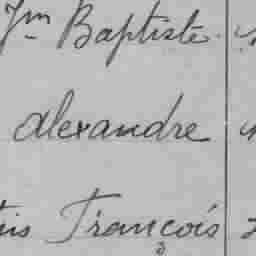 Jm Baptiste
Alexandre
François